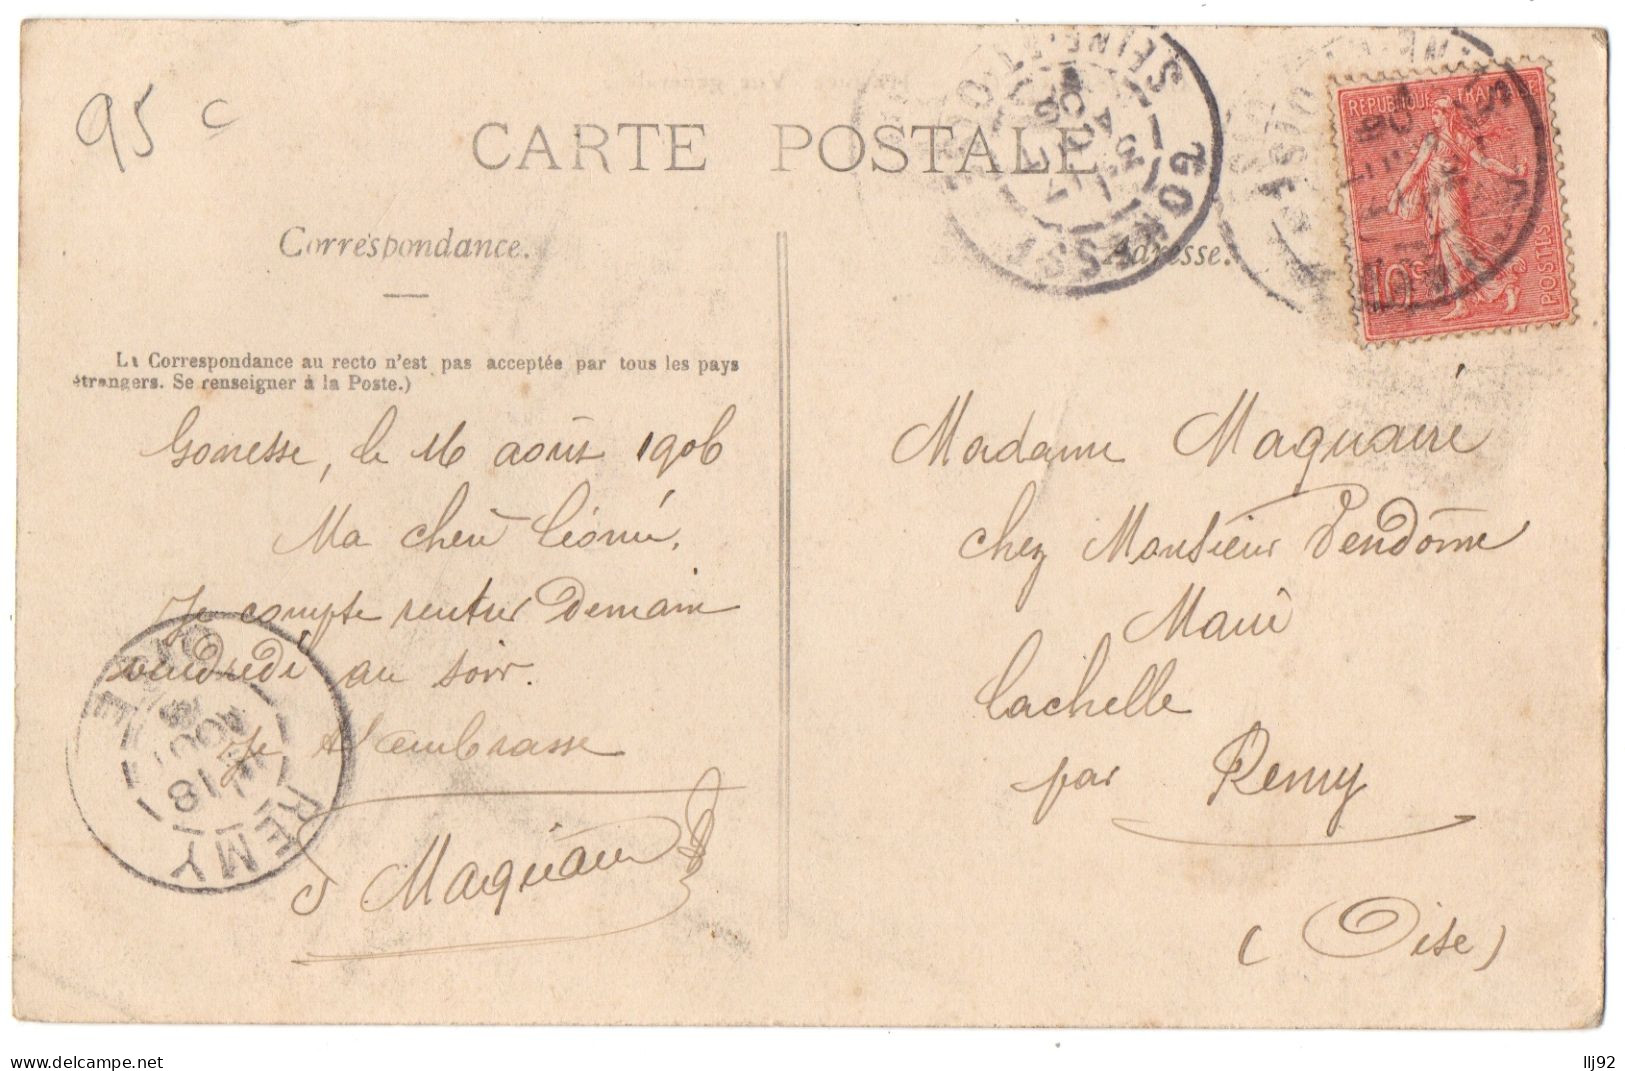 95 c
CARTE POSTALE
Correspondance.
Adresse.
La Correspondance au recto n'est pas acceptée par tous les pays
étrangers. Se renseigner à la Poste.)
Gonesse, le 16 août 1906
Ma chère Léonie,
Je compte rentrer Demain
vendredi au soir.
Je t'embrasse
J Maquaire
Madame Maquaire
chez Monsieur Vendôme
Maire
Lachelle
par Remy
(Oise)
REPUBLIQUE FRANÇAISE
POSTES
10c
GONESSE
SEINE-ET-OISE
REMY
OISE
18
AOUT
www.delcampe.net
llj92